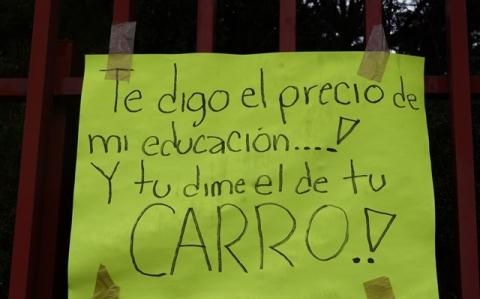 Te digo el precio de
mi educación....!
Y tu dime el de tu
CARRO!!